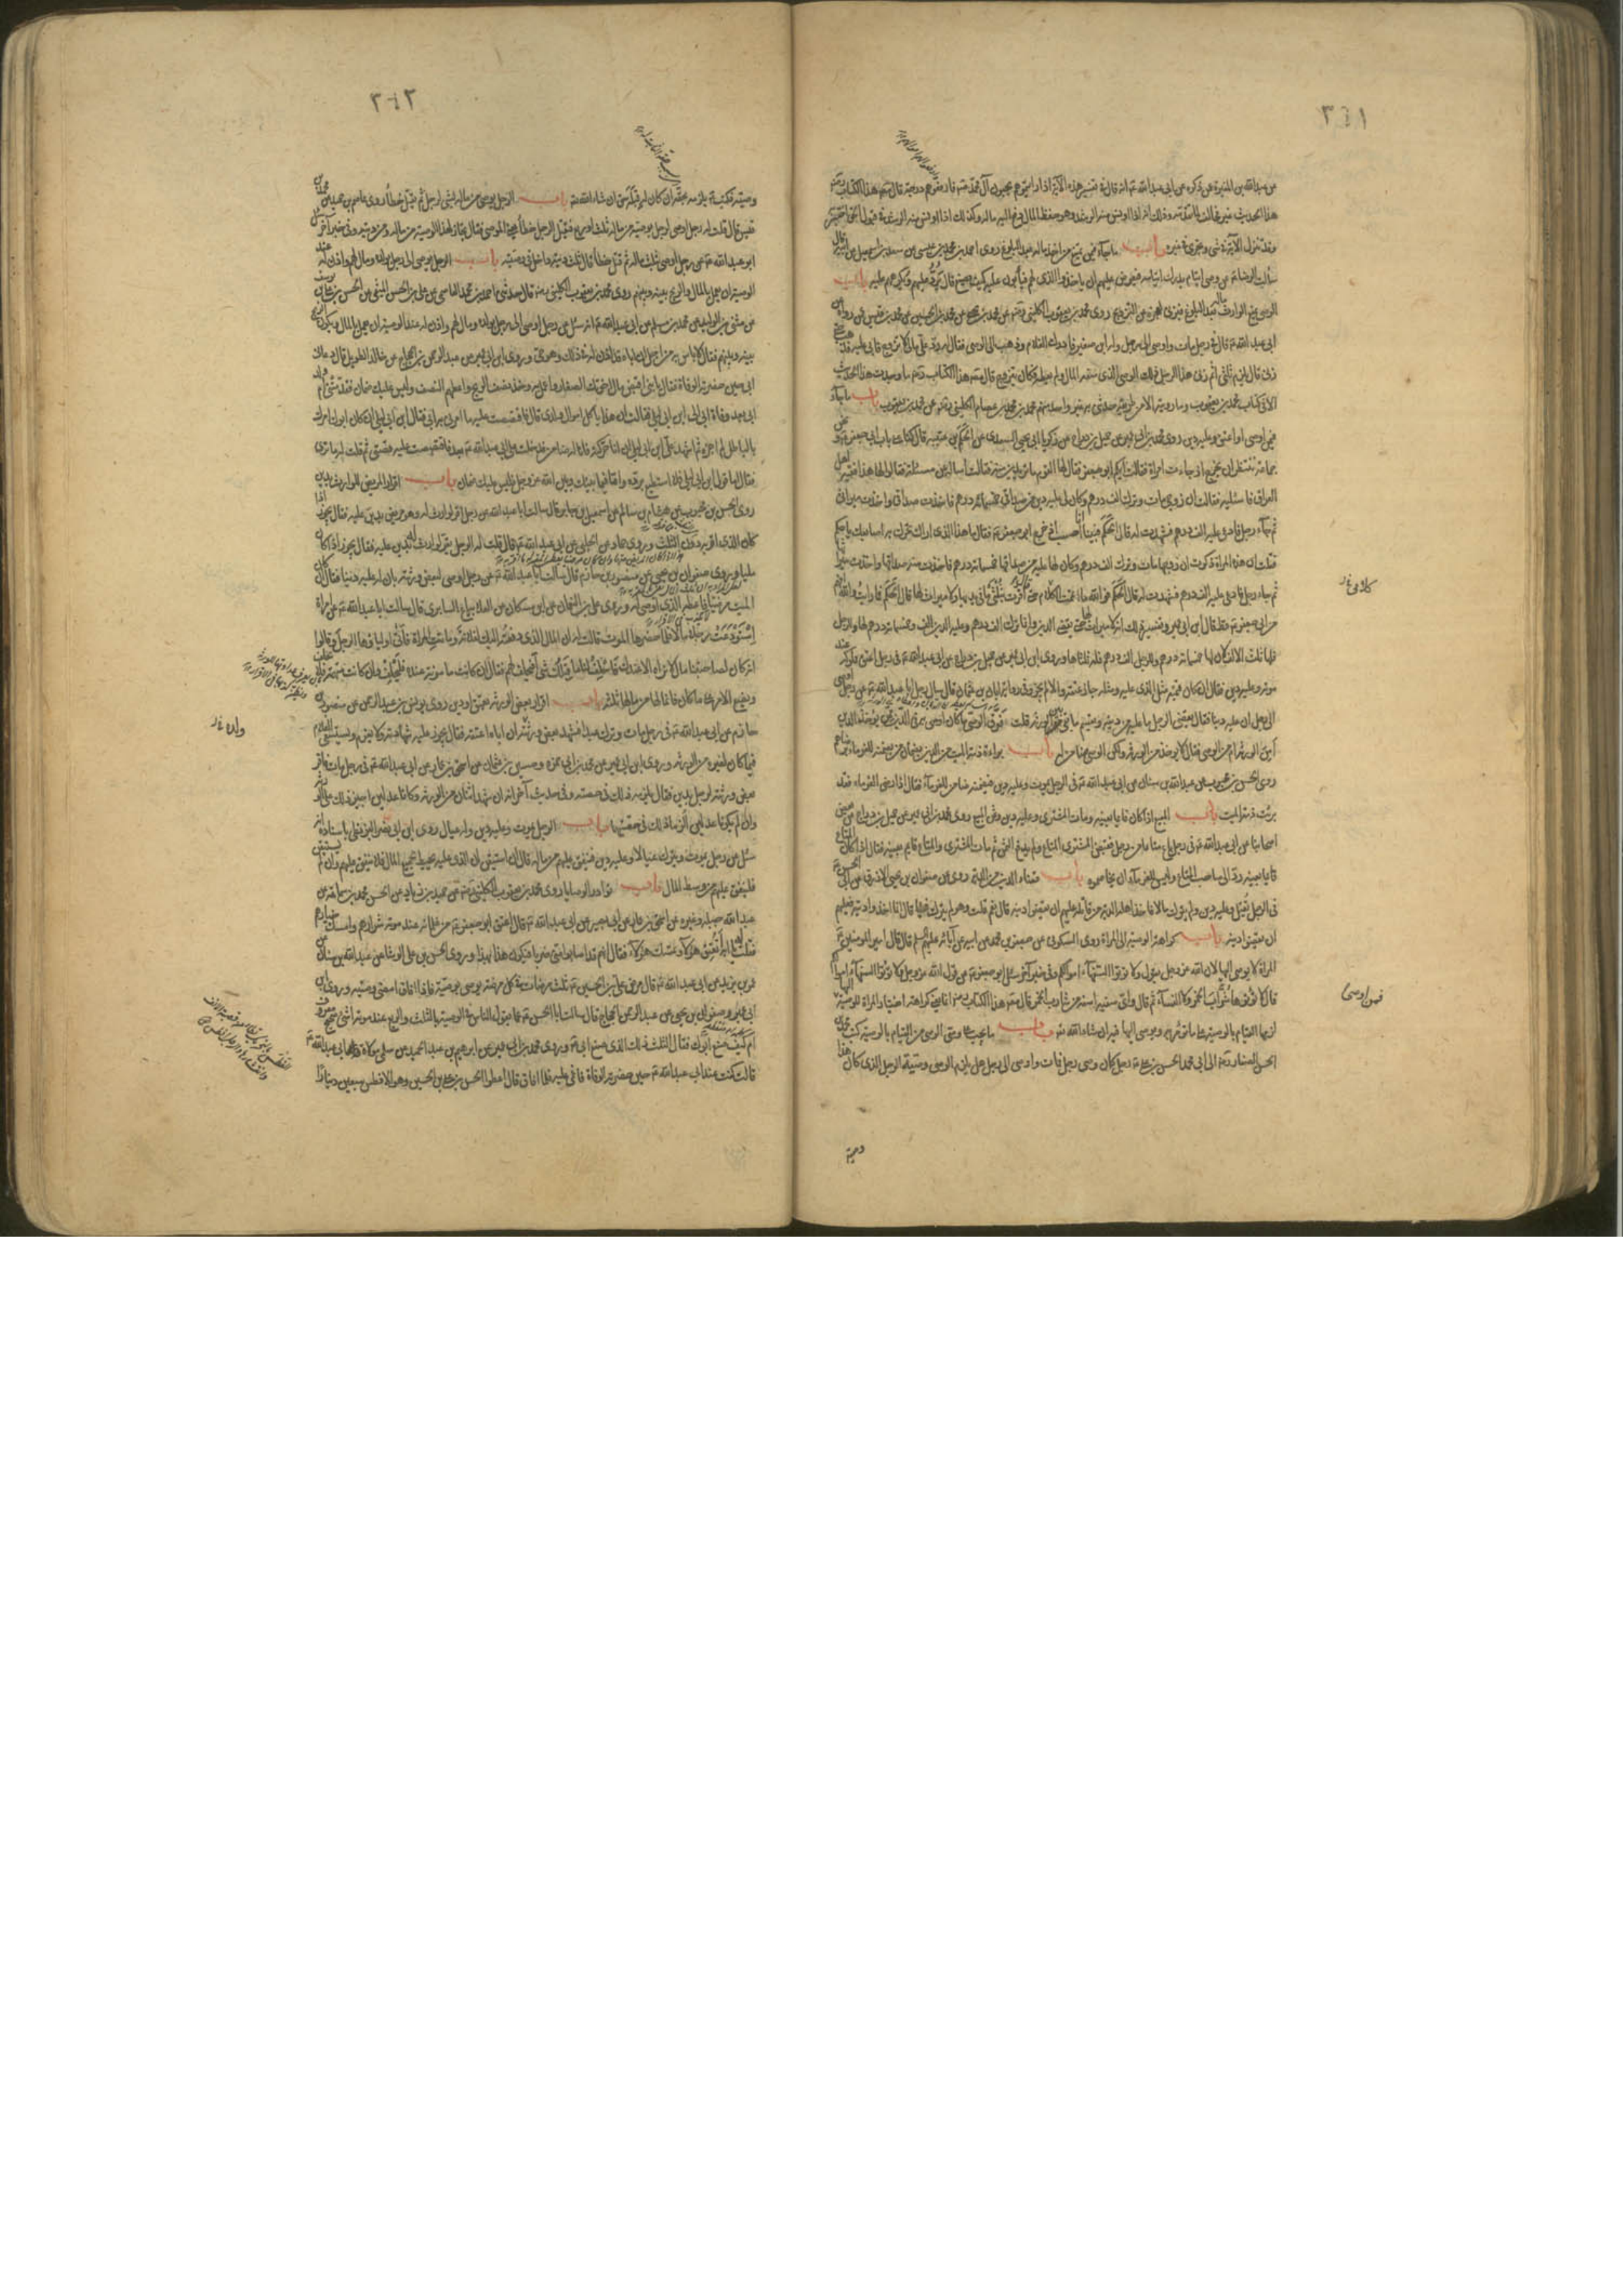 ٣٤١
عن عبد الله بن المغيرة عمن ذكره عن ابي عبد الله انه قال في تفسير هذه الآية اذا رايتموهم يحبون آل محمد فارفعوهم درجة قال مصنف هذا الكتاب
هذا الحديث غير مخالف لما تقدمه وذلك انه اذا اونس منه الرشد وهو حفظ المال دفع اليه ماله وكذلك اذا اونس منه الرشد في قبول الحق اختبر به
وقد تنزل الآية في شئ وتجرى في غيره باب ما جاء فيمن يمتنع من اخذ ماله بعد البلوغ روى احمد بن محمد بن عيسى عن سعد بن اسمعيل عن ابيه قال
سالت الرضا عن وصى ايتام يدرك ايتامه فيعرض عليهم ان ياخذوا الذى لهم فيأبون عليه كيف يصنع قال يرد عليهم ويكرههم عليه باب
الوصى يمنع الوارث ماله بعد البلوغ فيزنى لعجزه عن التزويج روى محمد بن يعقوب الكلينى عن محمد بن يحيى عن محمد بن الحسين عن محمد بن قيس عمن رواه عن
ابى عبد الله قال في رجل مات واوصى الى رجل وله ابن صغير فادرك الغلام وذهب الى الوصى فقال له رد على مالى لاتزوج فابى عليه فذهب حتى
زنى قال يلزم ثلثى اثم زنى هذا الرجل ذلك الوصى الذى منعه المال ولم يعطه فكان يتزوج قال مصنف هذا الكتاب ما وجدت هذا الحديث
الا في كتاب محمد بن يعقوب وما رويته الا من طريقه حدثنى به غير واحد منهم محمد بن محمد بن عصام الكلينى عن محمد بن يعقوب باب ما جاء
فيمن اوصى او اعتق وعليه دين روى محمد بن ابى عمير عن جميل بن دراج عن زكريا ابى يحيى السعدى عن الحكم بن عتيبة قال كنا على باب ابى جعفر ونحن
جماعة ننتظر ان يخرج اذ جاءت امراة فقالت ايكم ابو جعفر فقال لها القوم ما تريدين منه فقالت اساله عن مسئلة فقالوا لها هذا فقيه اهل
العراق فاسئليه فقالت ان زوجى مات وترك الف درهم وكان لى عليه دين من صداقى خمسمائة درهم فاخذت صداقى واخذت ميراثى
ثم جاء رجل فادعى عليه الف درهم فشهدت له قال الحكم فبينا انا احسب اذ خرج ابو جعفر فقال ما هذا الذى اراك تحرك به اصابعك يا حكم
فقلت ان هذه المراة ذكرت ان زوجها مات وترك الف درهم وكان لها عليه من صداقها خمسمائة درهم فاخذت منه صداقها واخذت ميراثها
ثم جاء رجل فادعى عليه الف درهم فشهدت له قال الحكم فوالله ما اتممت الكلام حتى قال اقرت بثلثى ما في يديها ولا ميراث لها قال الحكم فما رايت والله افهم
من ابى جعفر قط قال ابن ابى عمير وتفسير ذلك انه لا ميراث لها حتى يقضى الدين وانما ترك الف درهم وعليه الدين الف وخمسمائة درهم لها وللرجل
فلها ثلث الالف لان لها خمسمائة درهم وللرجل الف درهم فله ثلثاها وروى ابن ابى عمير عن جميل بن دراج عن ابى عبد الله في رجل اعتق مملوكه عند
موته وعليه دين فقال ان كان قيمته مثل الذى عليه ومثله جاز عتقه والا لم يجز وفى رواية ابان بن عثمان قال سال رجل ابا عبد الله عن رجل اوصى
الى رجل ان عليه دينا فقال يقضى الرجل ما عليه من دينه ويقسم ما بقى بين الورثة قلت فرق الوصى ما كان اوصى به فى الدين ممن يوخذ الدين
أمن الورثة ام من الوصى فقال لا يوخذ من الورثة ولكن الوصى ضامن له باب براءة ذمة الميت من الدين بضمان من يضمنه للغرماء برضاهم
روى الحسن بن محبوب عن عبد الله بن سنان عن ابى عبد الله في الرجل يموت وعليه دين فيضمنه ضامن للغرماء فقال اذا رضى الغرماء فقد
برئت ذمة الميت باب المبيع اذا كان قائما بعينه ومات المشترى وعليه دين وثمن المبيع روى محمد بن ابى عمير عن جميل بن دراج عن بعض
اصحابنا عن ابى عبد الله في رجل باع متاعا من رجل فقبض المشترى المتاع ولم يدفع الثمن ثم مات المشترى والمتاع قايم بعينه فقال اذا كان المتاع
قايما بعينه رد الى صاحب المتاع وليس للغرماء ان يخاصموه باب قضاء الدين من الدية روى عن صفوان بن يحيى الازرق عن ابى الحسن
فى الرجل يقتل وعليه دين ولم يترك مالا فاخذ اهله الدية من قاتله عليهم ان يقضوا دينه قال نعم قلت وهو لم يترك شيئا قال انما اخذوا ديته فعليهم
ان يقضوا دينه باب كراهية الوصية الى المراة روى السكونى عن جعفر بن محمد عن ابيه عن آبائه عليهم السلم قال قال امير المؤمنين
المراة لا يوصى اليها لان الله عز وجل يقول ولا تؤتوا السفهاء اموالكم وفى خبر آخر سئل ابو جعفر عن قول الله عز وجل ولا تؤتوا السفهاء اموالكم
قال لا تؤتوها شراب الخمر ولا النساء ثم قال واى سفيه اسفه من شارب الخمر قال مصنف هذا الكتاب انما يعنى كراهة اختيار المراة للوصية
انه يلزمها القيام بالوصية على ما تؤمر به ويوصى اليها فيه ان شاء الله باب ما يجب على وصى الوصى من القيام بالوصية كتب محمد بن
الحسن الصفار الى ابى محمد الحسن بن على رجل كان وصى رجل فمات واوصى الى رجل هل يلزم الوصى وصية الرجل الذى كان هذا
وصيه
فيمن اوصى
٣٤٢
وصيه فكتب يلزمه بحقه ان كان له قبله حق ان شاء الله باب الرجل يوصى من ماله بشئ لرجل ثم يقتل خطأ روى عاصم بن حميد عن محمد بن
قيس قال قلت له رجل اوصى لرجل بوصية من ماله ثلث او ربع فيقتل الرجل خطأ يعنى الموصى فقال يجاز لهذا الوصية من ماله ومن ديته وفى خبر آخر سئل
ابو عبد الله عن رجل اوصى بثلث ماله ثم قتل خطأ قال ثلث ديته داخل فى وصيته باب الرجل يوصى الى رجل بولده ومال لهم واذن له عند
الوصية ان يعمل بالمال والربح بينه وبينهم روى محمد بن يعقوب الكلينى قال حدثنى احمد بن محمد العاصمى عن على بن الحسن الميثمى عن الحسن بن على بن يوسف
عن مثنى بن الوليد عن محمد بن مسلم عن ابى عبد الله انه سئل عن رجل اوصى الى رجل بولده وبمال لهم واذن له عند الوصية ان يعمل بالمال ويكون الربح
بينه وبينهم فقال لا باس به من اجل ان اباه قد اذن له فى ذلك وهو حى وروى ابن ابى عمير عن عبد الرحمن بن الحجاج عن خالد الطويل قال دعانى
ابى حين حضرته الوفاة فقال يا بنى اقبض مال اخوتك الصغار واعمل به وخذ نصف الربح واعطهم النصف وليس عليك ضمان فقدمتنى ام ولد
ابى بعد وفاة ابى الى ابن ابى ليلى فقالت ان هذا ياكل اموال ولدى قال فاقتصصت عليه ما امرنى به ابى فقال ابن ابى ليلى ان كان ابوك امرك
بالباطل لم اجزه ثم اشهد على ابن ابى ليلى ان انا حركته فانا له ضامن فدخلت على ابى عبد الله بعد فاقتصصت عليه قصتى ثم قلت له ما ترى
فقال اما قول ابن ابى ليلى فلا استطيع رده واما فيما بينك وبين الله عز وجل فليس عليك ضمان باب اقرار المريض للوارث بدين
روى الحسن بن محبوب عن هشام بن سالم عن اسمعيل بن جابر قال سالت ابا عبد الله عن رجل اقر لوارث له وهو مريض بدين عليه فقال يجوز اذا
كان الذى اقر به دون الثلث وروى حماد عن الحلبى عن ابى عبد الله قال قلت له الرجل يقر لوارث بدين عليه فقال يجوز اذا كان
مليا وروى صفوان بن يحيى عن منصور بن حازم قال سالت ابا عبد الله عن رجل اوصى لبعض ورثته بان له عليه دينا فقال ان كان
الميت مرضيا فاعطه الذى اوصى له وروى على بن النعمان عن ابن مسكان عن العلا بياع السابرى قال سالت ابا عبد الله عن امراة
استودعت رجلا مالا فلما حضرها الموت قالت له ان المال الذى دفعته اليك لفلانة وماتت المراة فاتى اولياؤها الرجل وقالوا
انه كان لصاحبتنا مال لا نراه الا عندك فاحلف لنا ما قبلك شئ أفيحلف لهم فقال ان كانت مامونة عنده فليحلف وان كانت متهمة فلا يحلف
ويضع الامر على ما كان فانما لها من مالها ثلثه باب اقرار بعض الورثة بعتق او دين روى يونس بن عبد الرحمن عن منصور بن
حازم عن ابى عبد الله فى رجل مات وترك عبدا فشهد بعض ورثته ان اباه اعتقه فقال يجوز عليه شهادته ولا يغرم ويستسعى الغلام
فيما كان لغيره من الورثة وروى ابن ابى عمير عن محمد بن ابى حمزه وحسين بن عثمان عن اسحق بن عمار عن ابى عبد الله فى رجل مات فاقر
بعض ورثته لرجل بدين فقال يلزمه ذلك فى حصته وفى حديث آخر انه ان شهد اثنان من الورثة وكانا عدلين اجيز ذلك على الورثة
وان لم يكونا عدلين الزما ذلك فى حصتهما باب الرجل يموت وعليه دين وله عيال روى ابن ابى نصر البزنطى باسناده انه
سئل عن رجل يموت ويترك عيالا وعليه دين فينفق عليهم من ماله قال ان استيقن ان الذى عليه يحيط بجميع المال فلا ينفق عليهم وان لم يستيقن
فلينفق عليهم من وسط المال باب نوادر الوصايا روى محمد بن يعقوب الكلينى عن حميد بن زياد عن الحسن بن محمد بن سماعة عن
عبد الله بن جبلة وغيره عن اسحق بن عمار عن ابى بصير عن ابى عبد الله قال اعتق ابو جعفر من غلمانه عند موته شرارهم وامسك خيارهم
فقلت له يا ابه تعتق هؤلاء وتمسك هؤلاء فقال انهم قد اصابوا منى ضربا فيكون هذا بهذا وروى الحسن بن على الوشا عن عبد الله بن سنان عن
عمر بن يزيد عن ابى عبد الله قال مرض على بن الحسين ثلث مرضات فى كل مرضة يوصى بوصية فاذا افاق امضى وصيته وروى ابن
ابى عمير وصفوان بن يحيى عن عبد الرحمن بن الحجاج قال سالت ابا الحسن عما يقول الناس فى الوصية بالثلث والربع عند موته اشئ صحيح معروف
ام كيف صنع ابوك فقال الثلث ذلك الذى صنع ابى وروى محمد بن ابى عمير عن ابرهيم بن عبد الحميد عن سلمى مولاة ولد ابى عبد الله
قالت كنت عند ابى عبد الله حين حضرته الوفاة فاغمى عليه فلما افاق قال اعطوا الحسن بن على بن الحسين وهو الافطس سبعين دينارا